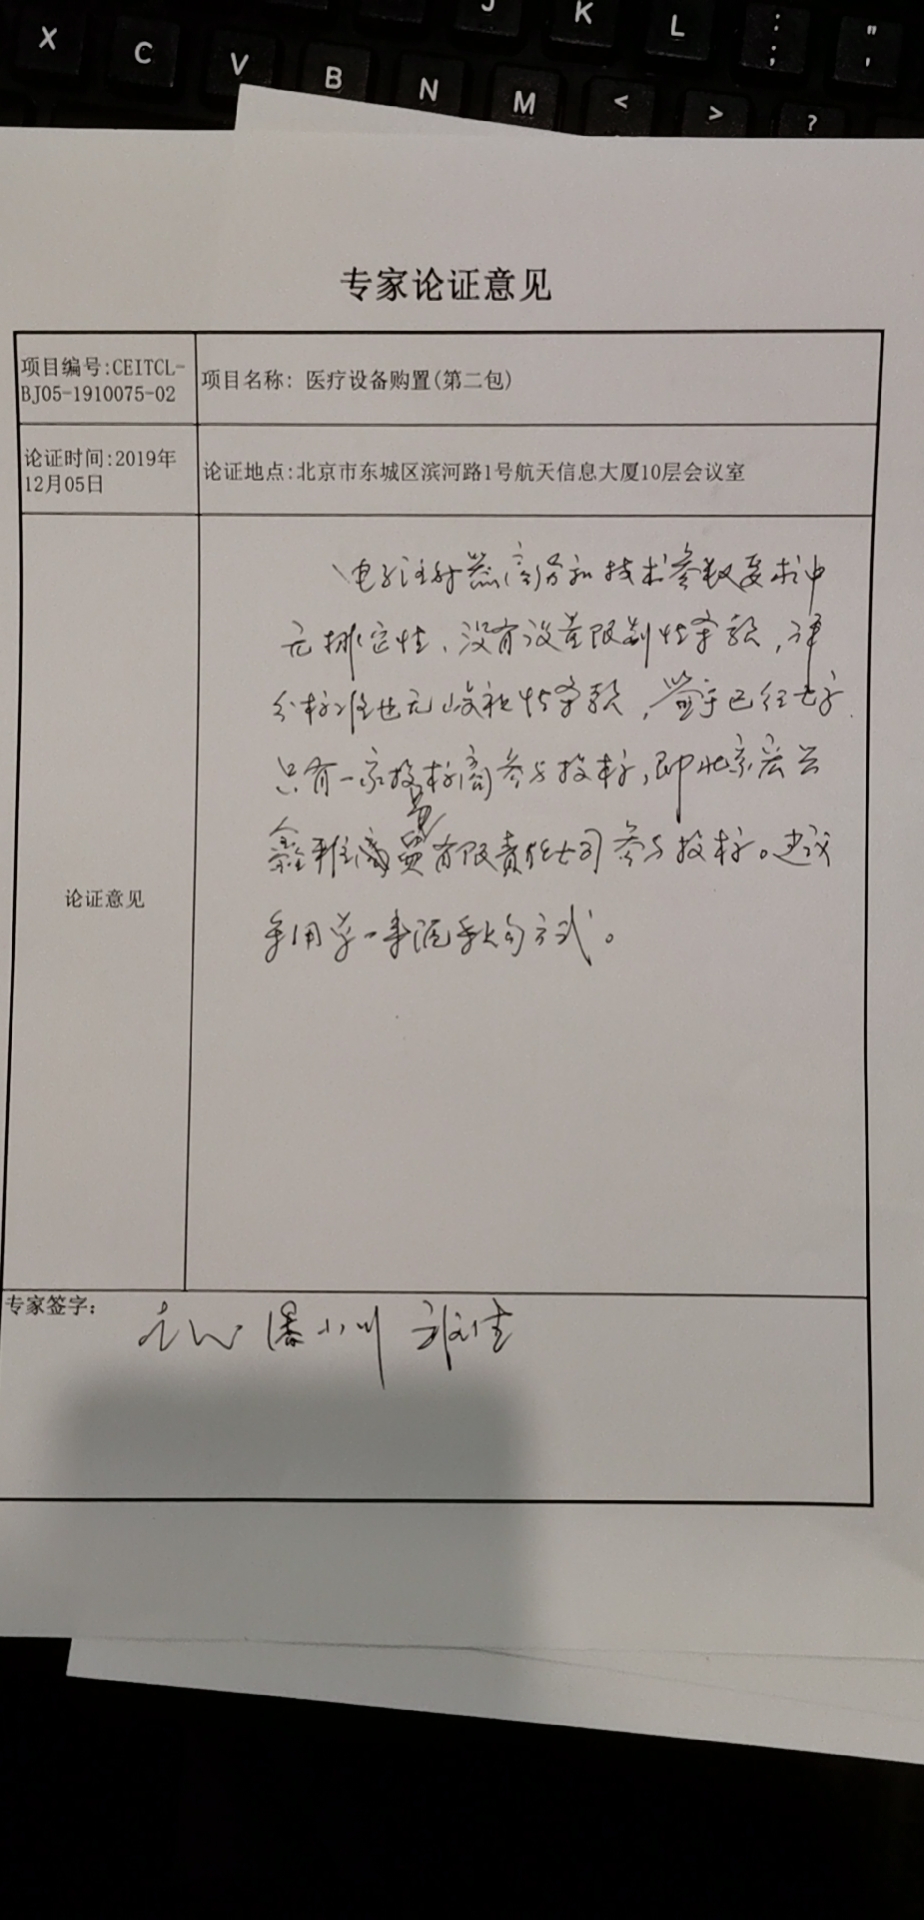 X C V B N M < > ?
J K L : ; " '
专家论证意见
项目编号:CEITCL-
BJ05-1910075-02
项目名称: 医疗设备购置(第二包)
论证时间:2019年
12月05日
论证地点:北京市东城区滨河路1号航天信息大厦10层会议室
论证意见
电子注射器商务和技术参数要求中
无排它性、没有设置限制性条款,评
分标准也无歧视性条款,鉴于已经
只有一家投标商参与投标,即北京宏
鑫雅商贸有限责任公司参与投标。建议
采用单一来源采购方式。
专家签字: